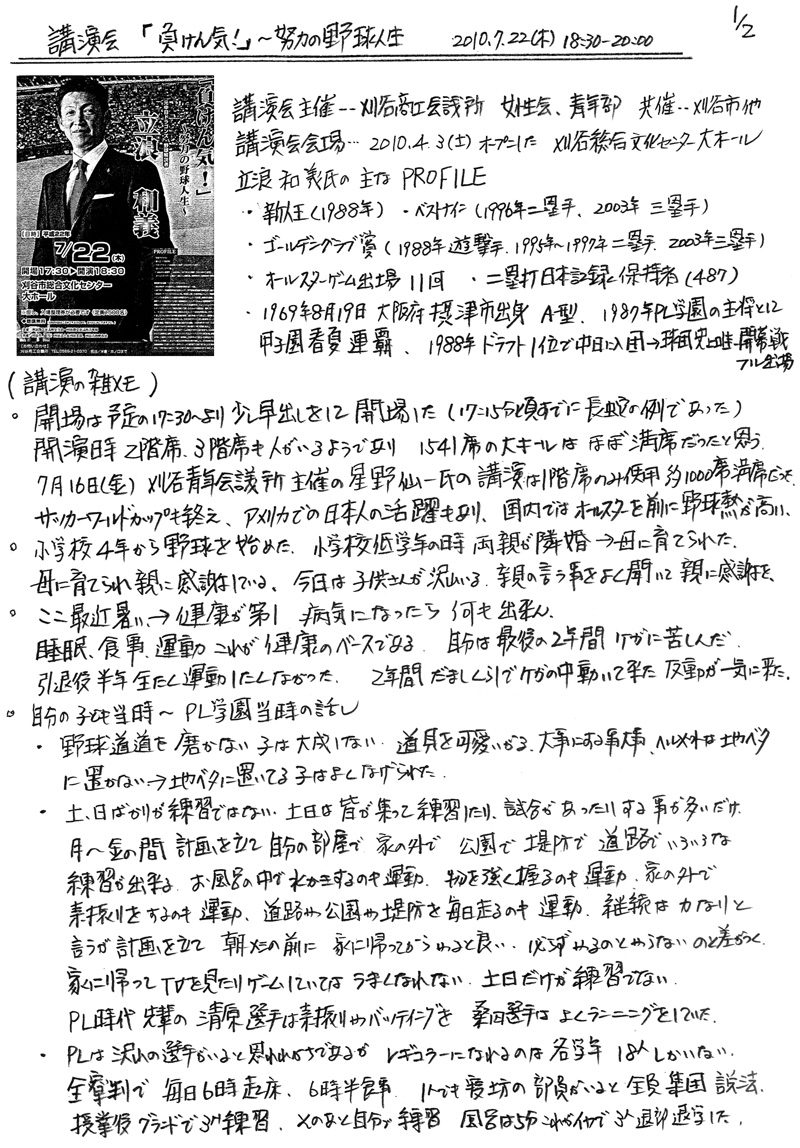 1/2
講演会 「負けん気!」～努力の野球人生 2010.7.22(木) 18:30-20:00
「負けん気!」
～努力の野球人生～
立浪 和義
PROFILE
[日時] 平成22年
7/22(木)
開場17:30▶開演18:30
刈谷市総合文化センター
大ホール
講演会主催‥刈谷商工会議所 女性会、青年部 共催‥刈谷市他
講演会会場… 2010.4.3(土)オープンした 刈谷総合文化センター大ホール
立浪和義氏の主な PROFILE
・新人王(1988年) ・ベストナイン(1996年二塁手、2003年 三塁手)
・ゴールデングラブ賞(1988年遊撃手、1995年～1997年二塁手、2003年三塁手)
・オールスターゲーム出場 11回 ・二塁打日本記録保持者(487)
・1969年8月19日 大阪府 摂津市出身 A型、1987年PL学園の主将として
甲子園春夏連覇、1988年ドラフト1位で中日に入団→球団史上唯一開幕戦
フル出場
(講演の雑メモ)
○ 開場は予定の17:30より少し早出しをして開場した (17:15分頃すでに長蛇の列であった)
開演日時 2階席、3階席も人がいるようであり 1541席の大ホールは ほぼ満席だったと思う。
7月16日(金) 刈谷青年会議所主催の星野仙一氏の講演は1階席のみ使用 約1000席満席だった
サッカーワールドカップも終え、アメリカでの日本人の活躍もあり、国内ではオールスターを前に野球熱が高い。
○ 小学校4年から野球を始めた。小学校低学年の時 両親が離婚→母に育てられた。
母に育てられ親に感謝している。今日は子供さんが沢山いる。親の言う事をよく聞いて親に感謝を。
○ ここ最近暑い→健康が第1 病気になったら何も出来ん。
睡眠、食事、運動 これが健康のベースである。自分は最後の2年間ケガに苦しんだ。
引退後半年全たく運動しなかった。2年間だましだましでケガの中動いて来た 反動が一気に来た。
○ 自分の子ども当時～PL学園当時の話し
・野球道道を磨かない子は大成しない。道具を可愛いがる、大事にする事大事、ヘルメットは地ベタ
に置かない→地ベタに置いてる子はよくなげられた。
・土、日ばかりが練習ではない。土日は皆が集って練習したり、試合があったりする事が多いだけ。
月～金の間 計画を立て 自分の部屋で 家の外で 公園で 堤防で 道路で いろいろな
練習が出来る。お風呂の中で水かきするのも運動、物を強く握るのも運動、家の外で
素振りをするのも運動、道路や公園や堤防を毎日走るのも運動、継続は力なりと
言うが計画を立て 朝メシの前に 家に帰ってからやると良い。必らずやるのとやらないのと差がつく
家に帰ってTVを見たりゲームしていては うまくなれない。土日だけが練習でない。
PL時代 先輩の清原選手は素振りやバッティングを 桑田選手は よくランニングをしていた。
・PLは沢山の選手がいると思われがちであるが レギュラーになれるのは 各学年 18人しかいない。
全寮制で 毎日6時起床、6時半食事 1人でも寝坊の部員がいると全員集団説法。
授業後グランドで3h練習、そのあと自分で練習 風呂は5分